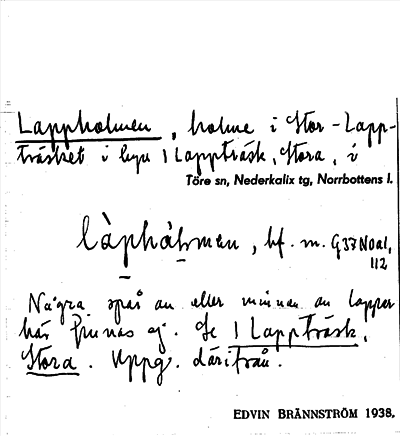 Lappholmen, holme i Stor-Lapp-
träsket i byn 1 Lappträsk, Stora, i
Töre sn, Nederkalix tg, Norrbottens l.
làphåłmen, bf. m. G37 Noa1,
112
Några spår av eller minnen av lappar
här finnas ej. Se 1 Lappträsk,
Stora. Uppg. därifrån.
EDVIN BRÄNNSTRÖM 1938.